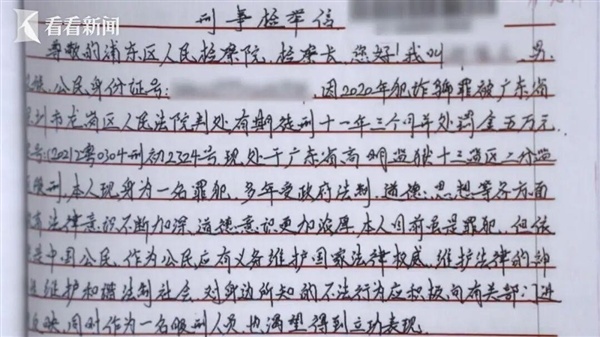 看看新闻
刑事检举信
尊敬的浦东区人民检察院,检察长,您好!我叫 男,
公民身份证号: 因2020年犯诈骗罪被广东省
圳市龙岗区人民法院判处有期徒刑十一年三个月并处罚金五万元
号:(2021)粤0304刑初2324号现处于广东省高明监狱十三监区二分监
服刑,本人现身为一名罪犯,多年受政府法制、道德、思想等各方面
法律意识不断加深,道德意识更加浓厚,本人目前虽是罪犯,但依
是中国公民,作为公民应有义务维护国家法律权威,维护法律的
维护和谐法制社会,对身边所知的不法行为应积极向有关部门进
反映,同时作为一名服刑人员,也渴望得到立功表现。